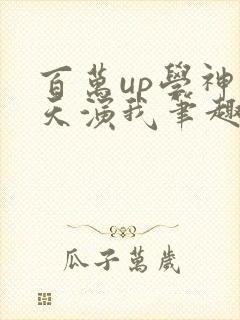 百萬up學神
天演我筆趣
瓜子萬歲